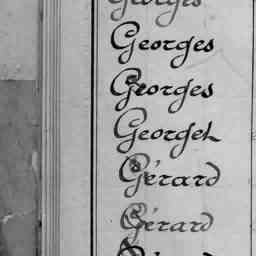 Georges
Georges
Georges
Georget
Gérard
Gérard